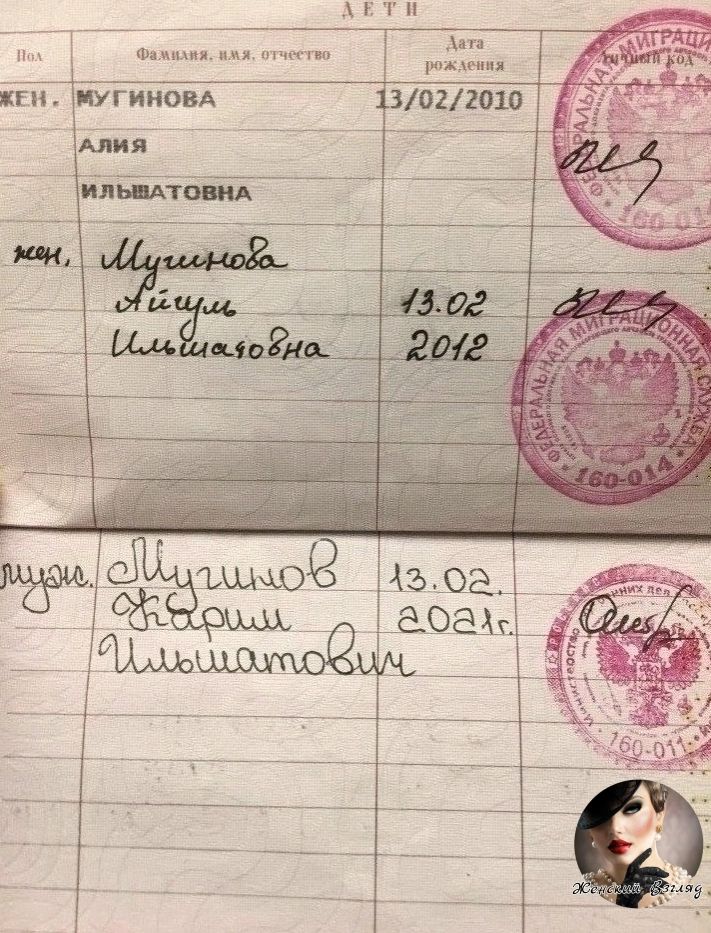 ДЕТИ
Пол Фамилия, имя, отчество Дата рождения Личный код
ЖЕН. МУГИНОВА 13/02/2010
АЛИЯ
ИЛЬШАТОВНА
ФЕДЕРАЛЬНАЯ МИГРАЦИ
160-01
жен. Мугинова
Айгуль 13.02
Ильшатовна 2012
ФЕДЕРАЛЬНАЯ МИГРАЦИОННАЯ СЛУЖБА
160-014
муж. Мугинов 13.02.
Карим 2021г.
Ильшатович
160-011
Женский Взгляд